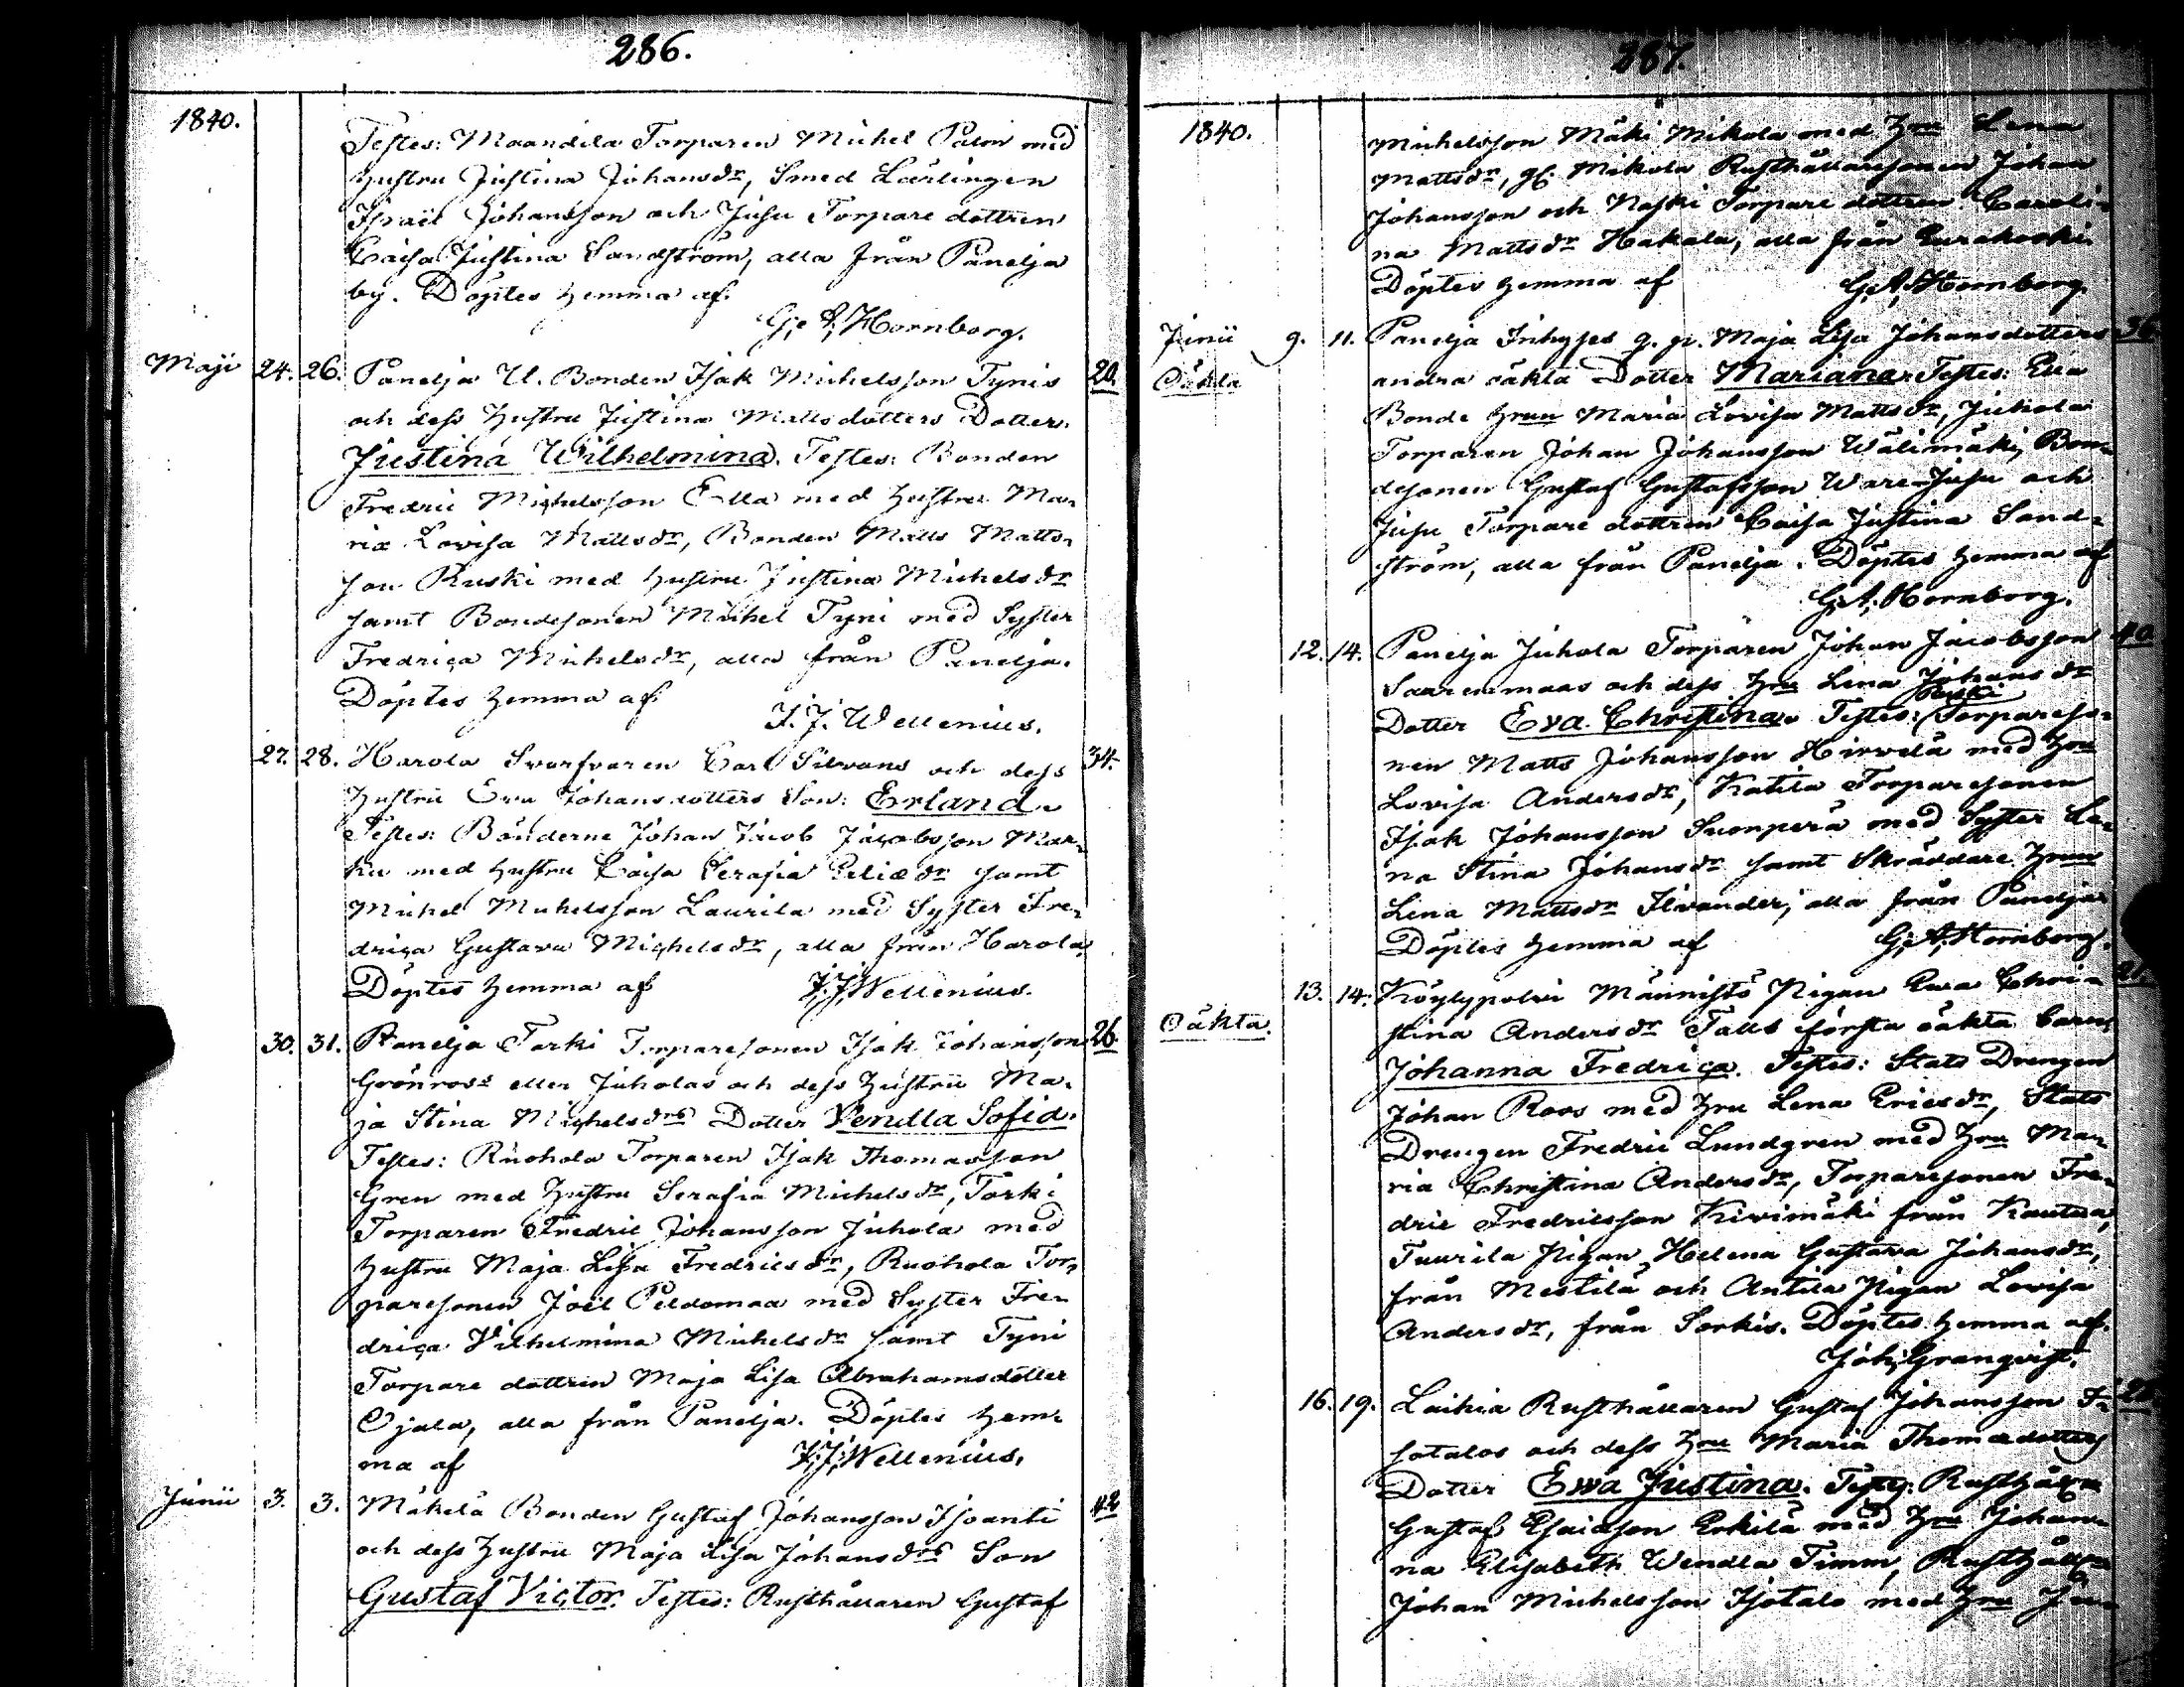 286.
1840.
Testes: Maandila Torparen Michel Palin med
hustru Justina Johansdr, Smed Lärlingen
Isräel Johansson och Jusu Torpare dottren
Caisa Justina Sandström, alla från Panelja
by. Döptes hemma af
G: A: Hornborg.
Maji 24. 26. Panelja U. Bonden Isak Michelsson Tynis 20.
och dess hustru Justina Mattsdotters Dotter.
Justina Wilhelmina. Testes: Bonden
Fredric Michelsson Ella med hustru Ma-
ria Lovisa Mattsdr, Bonden Matts Matts-
son Ruski med hustru Justina Michelsdr
samt Bondesonen Michel Tyni med Syster
Fredrica Michelsdr, alla från Panelja.
Döptes hemma af
J. J. Wellenius.
27. 28. Harola Svarfvaren Carl Silvans och dess 34.
hustru Eva Johansdotters Son: Erland.
Testes: Bönderne Johan Jacob Jacobsson Mar-
ku med hustru Caisa Serafia Eliædr samt
Michel Michelsson Laurila med Syster Fre-
drica Gustava Michelsdr, alla från Harola.
Döptes hemma af J. J. Wellenius.
30. 31. Panelja Torki Torparesonen Isak Johansson 26.
Grönroos eller Juholas och dess hustru Ma-
ja Stina Michelsdrs Dotter Vendla Sofia.
Testes: Ruohola Torparen Isak Thomasson
Gren med hustru Serafia Michelsdr, Torki
Torparen Fredric Johansson Juhola med
hustru Maja Lisa Fredricsdr, Ruohola Tor-
paresonen Joël Peldomaa med Syster Fre-
drica Vilhelmina Michelsdr samt Tyni
Torpare dottren Maja Lisa Abrahamsdotter
Ojala, alla från Panelja. Döptes hem-
ma af J: J: Wellenius.
Junii 3. 3. Mäkelä Bonden Gustaf Johansson Isoanti 42
och dess hustru Maja Lisa Johansdrs Son
Gustaf Victor. Testes: Rusthållaren Gustaf
287.
1840.
Michelsson Mäki Mikola med hru Lena
Mattsdr, Mikola Rusthållaresonen Johan
Johansson och Naski Torpare dottren Caroli-
na Mattsdr Hakala, alla från Eurakoski.
Döptes hemma af G: A: Hornborg.
Junii 9. 11. Panelja Inhyses Maja Lisa Johansdotters 36.
Oäkta andra oäkta Dotter Mariana. Testes: Ella
Bonde hrun Maria Lovisa Mattsdr, Juhola
Torparen Johan Johansson Wälimäki, Bon-
desonen Gustaf Gustafsson Ware-Jusu och
Jusu Torpare dottren Caisa Justina Sand-
ström, alla från Panelja. Döptes hemma af
G: A: Hornborg.
12. 14. Panelja Juhola Torparen Johan Jacobsson 40.
Saarenmaas och dess hru Lena Johansdr
Ruski
Dotter Eva Christina. Testes: Torpareso-
nen Matts Johansson Hirvelä med hru
Lovisa Andersdr, Katila Torparesonen
Isak Johansson Suonperä med Syster Le-
na Stina Johansdr samt Skräddare hrun
Lena Mattsdr Ilvander, alla från Panelja.
Döptes hemma af G: A: Hornborg.
13. 14. Köylypolvi Männistö Pigan Eva Chri- 21.
Oäkta. stina Andersdr Talls första oäkta barn,
Johanna Fredrica. Testes: Stats Drengen
Johan Roos med hru Lena Ericsdr, Stats
Drengen Fredric Lundgren med hru Ma-
ria Christina Andersdr, Torparesonen Fre-
dric Fredricsson Kivimäki från Kauttua,
Tuurila Pigan Helena Gustava Johansdr,
från Mestilä och Antila Pigan Lovisa
Andersdr, från Sorkis. Döptes hemma af.
Joh: Granqvist.
16. 19. Laihia Rusthållaren Gustaf Johansson I-
sotalos och dess hru Maria Thomædotters
Dotter Ewa Justina. Testes: Rusthålrn
Gustaf Esaiasson Erkilä med hru Johan-
na Elisabeth Wendla Timm, Rusthållrn
Johan Michelsson Isotalo med hru